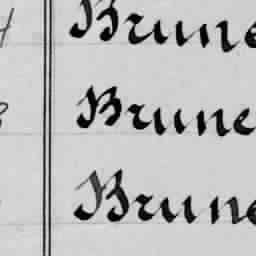 Brune
Brune
Brune